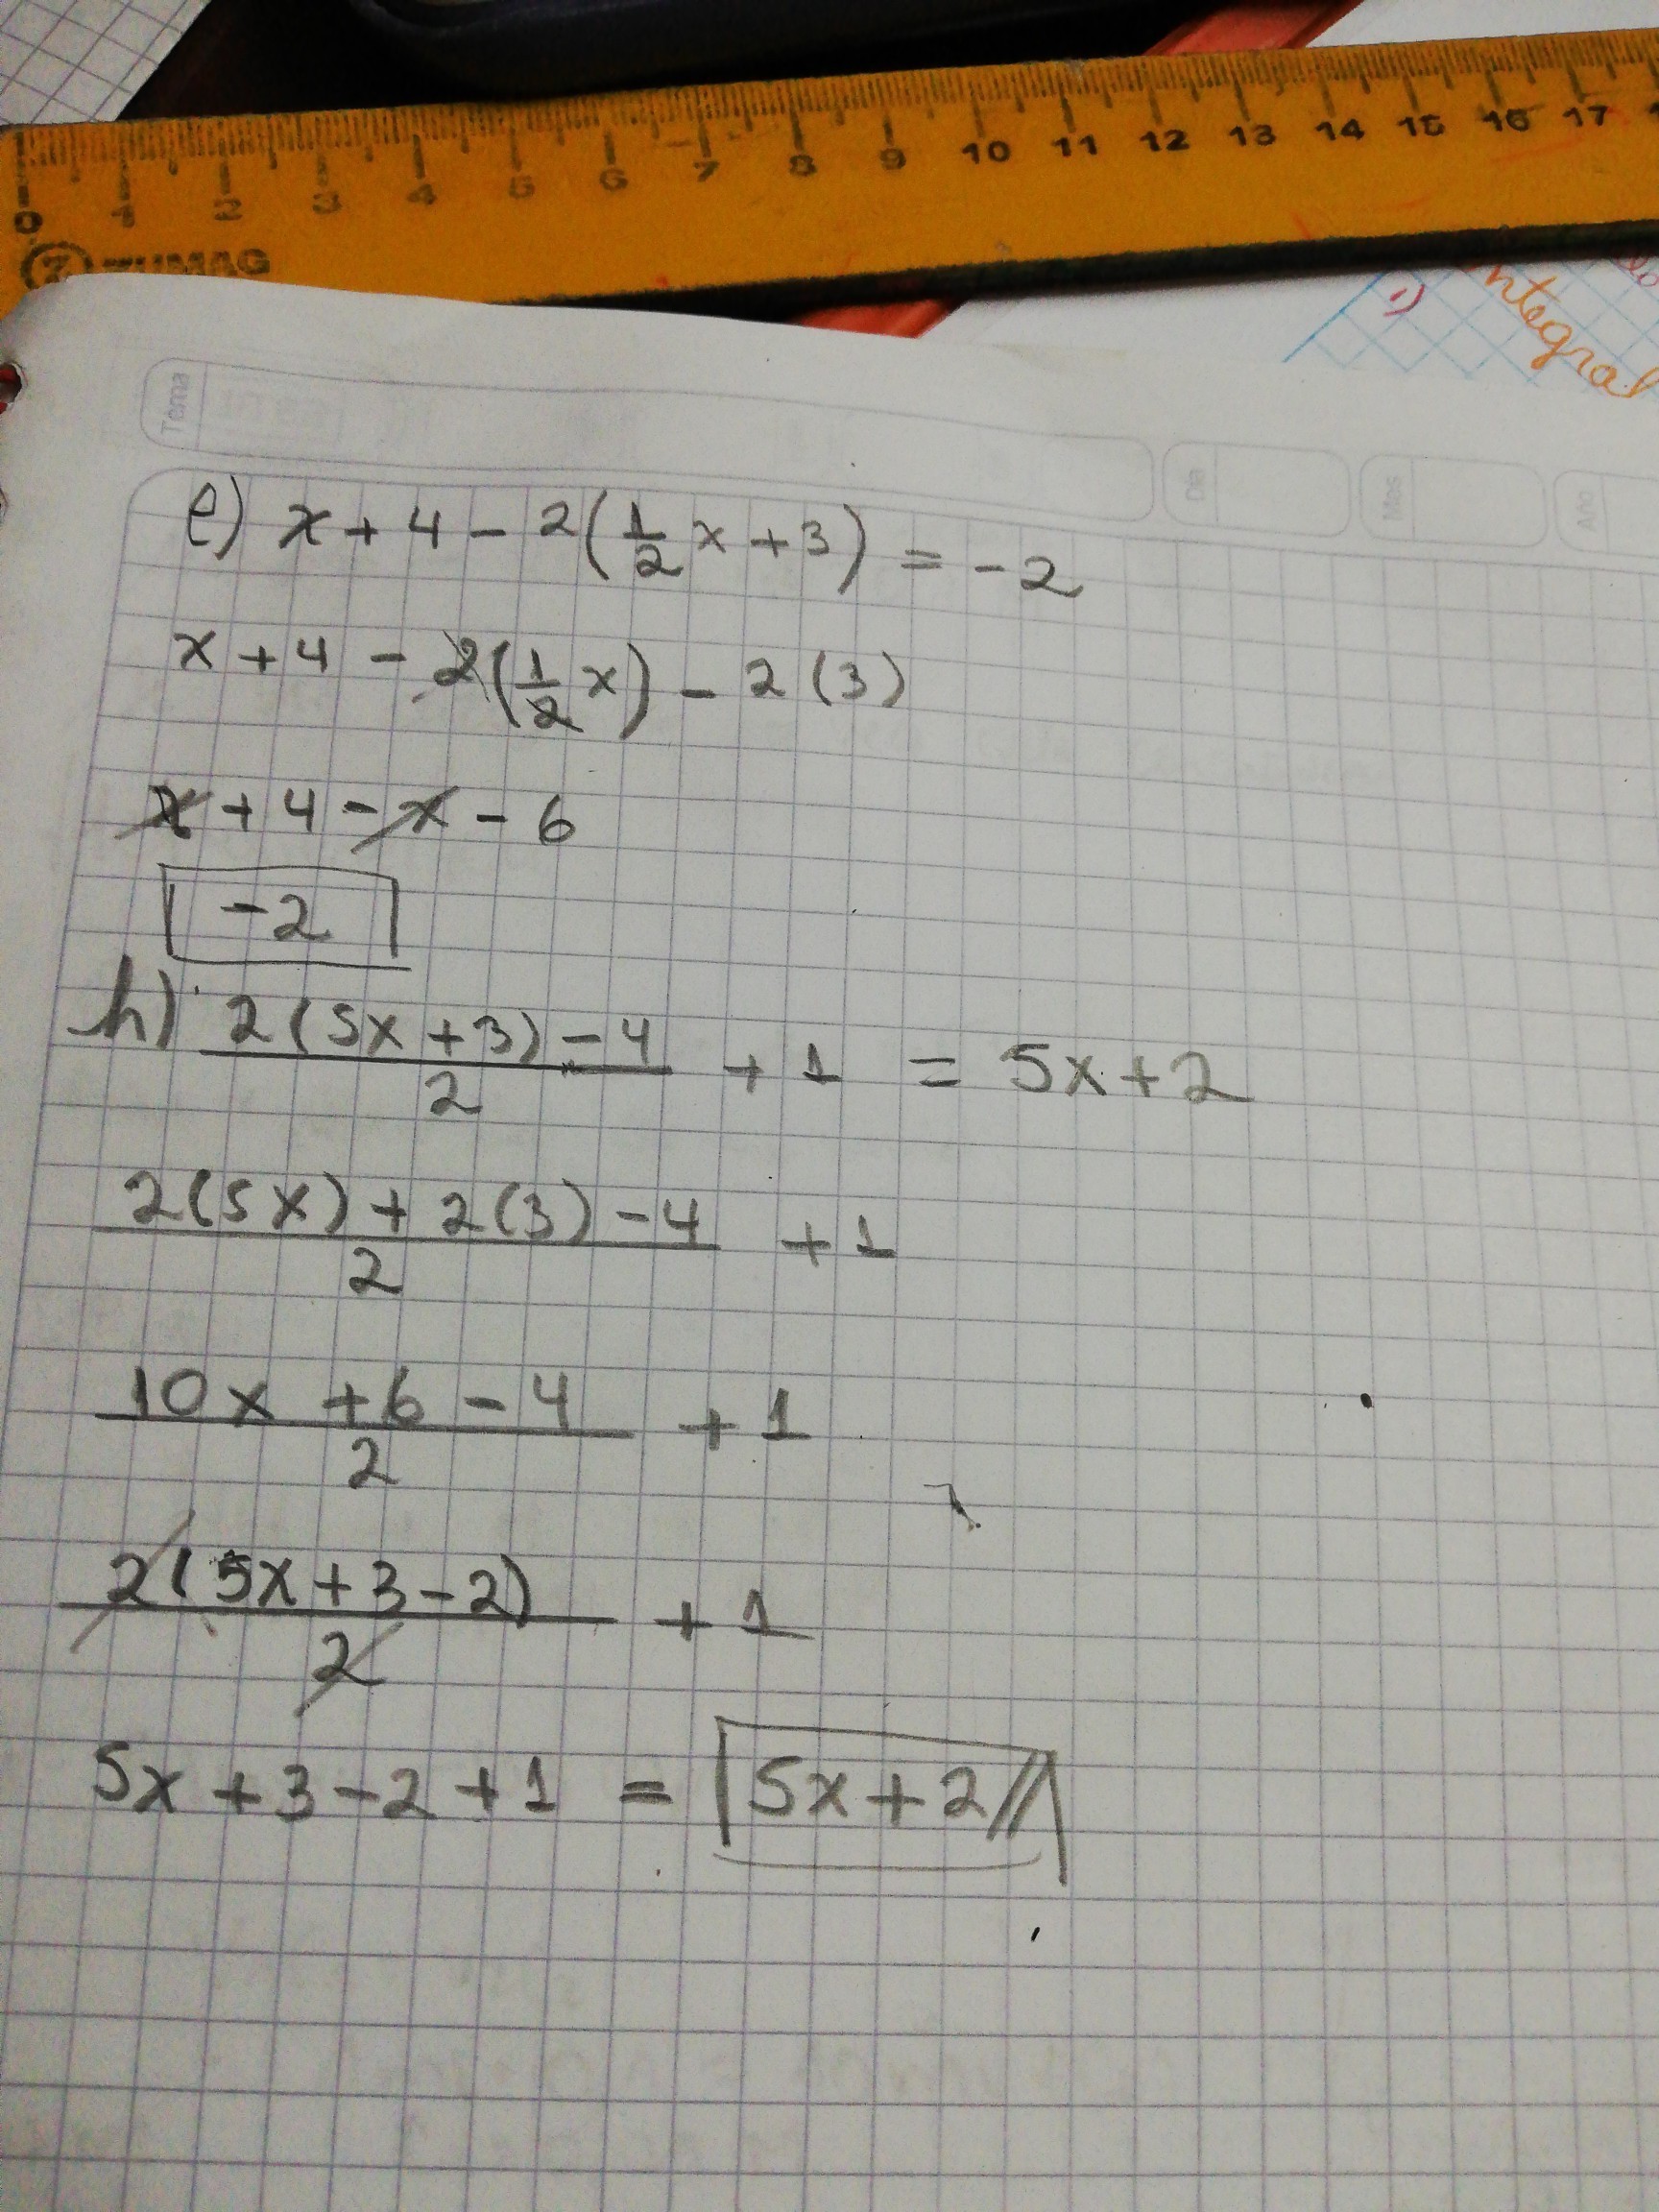 0 1 2 3 4 5 6 7 8 9 10 11 12 13 14 15 16 17
ZUMAG
1)
ntegral
Tema
Día
Mes
Año
e) x + 4 - 2(1/2 x + 3) = -2
x + 4 - 2(1/2 x) - 2(3)
x + 4 - x - 6
-2
h) 2(5x + 3) - 4 / 2 + 1 = 5x + 2
2(5x) + 2(3) - 4 / 2 + 1
10x + 6 - 4 / 2 + 1
2(5x + 3 - 2) / 2 + 1
5x + 3 - 2 + 1 = 5x + 2 //